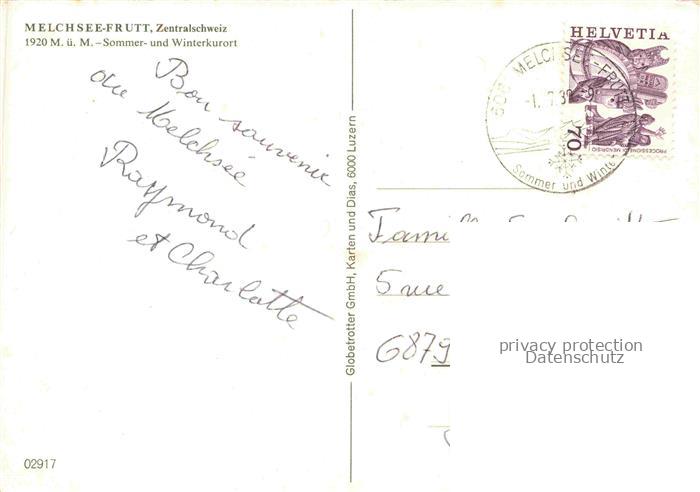 MELCHSEE-FRUTT, Zentralschweiz
1920 M. ü. M. – Sommer- und Winterkurort
Bon souvenir
du Melchsée
Raymond
et Charlotte
Globetrotter GmbH, Karten und Dias, 6000 Luzern
HELVETIA
70
PROCESSIONE DI MENDRISIO
MELCHSEE-FRUTT
Sommer und Winte
Fami
5 rue
6879
privacy protection
Datenschutz
02917